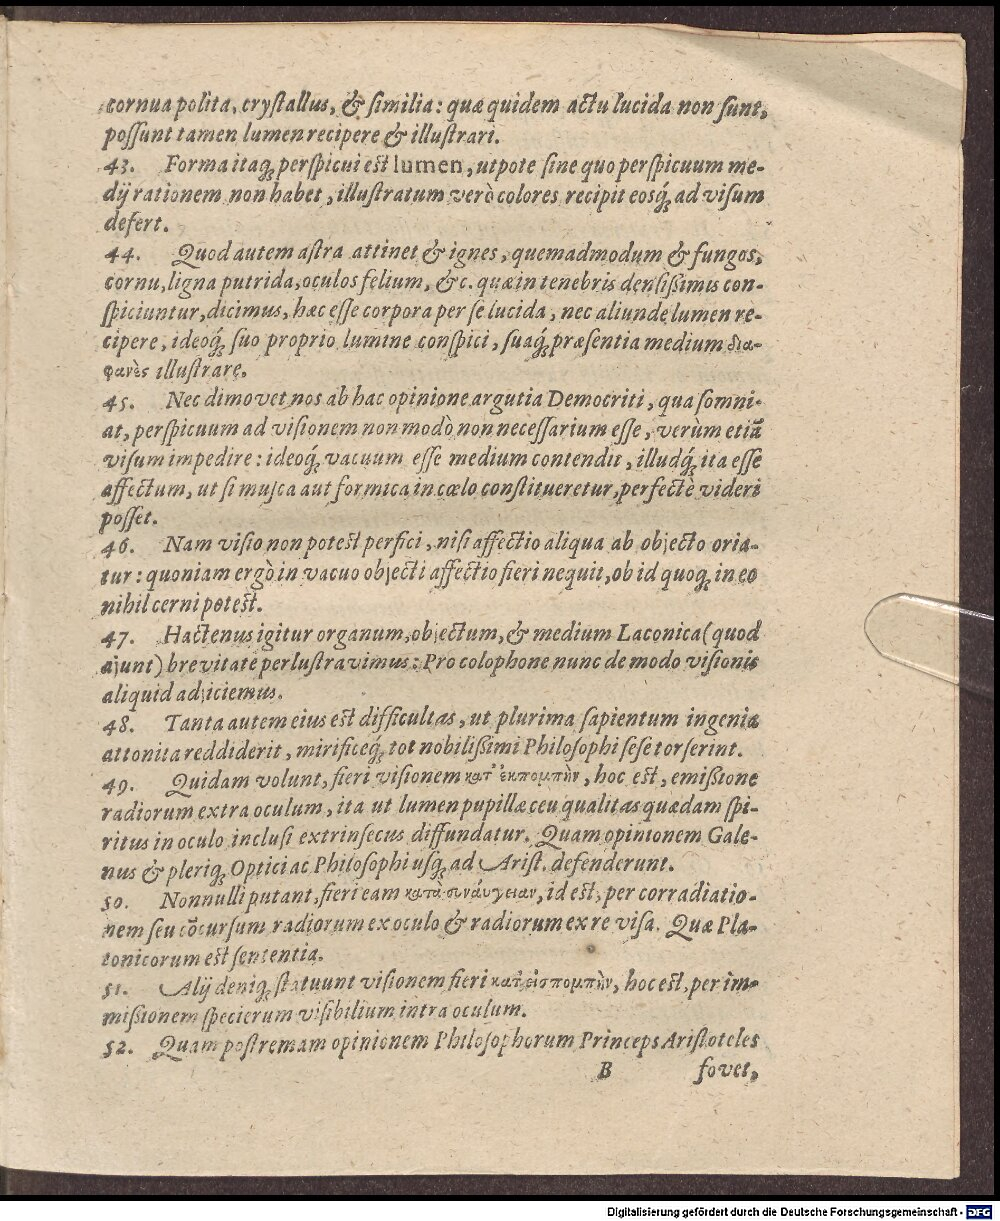 cornua polita, crystallus, & similia: quæ quidem actu lucida non sunt,
possunt tamen lumen recipere & illustrari.
43. Forma itaq́; perspicui est lumen, utpote sine quo perspicuum me-
dij rationem non habet, illustratum verò colores recipit eosq́; ad visum
defert.
44. Quod autem astra attinet & ignes, quemadmodum & fungos,
cornu, ligna putrida, oculos felium, &c. quæ in tenebris densißimis con-
spiciuntur, dicimus, hæc esse corpora per se lucida, nec aliunde lumen re-
cipere, ideoq́; suo proprio lumine conspici, suaq́; præsentia medium δια-
φανὲς illustrare.
45. Nec dimovet nos ab hac opinione argutia Democriti, qua somni-
at, perspicuum ad visionem non modò non necessarium esse, verùm etiã
visum impedire: ideoq́; vacuum esse medium contendit, illudq́; ita esse
affectum, ut si musca aut formica in cœlo constitueretur, perfectè videri
posset.
46. Nam visio non potest perfici, nisi affectio aliqua ab objecto oria-
tur: quoniam ergò in vacuo objecti affectio fieri nequit, ob id quoq; in eo
nihil cerni potest.
47. Hactenus igitur organum, objectum, & medium Laconica (quod
ajunt) brevitate perlustravimus: Pro colophone nunc de modo visionis
aliquid adjiciemus.
48. Tanta autem eius est difficultas, ut plurima sapientum ingenia
attonita reddiderit, mirificeq́; tot nobilißimi Philosophi sese torserint.
49. Quidam volunt, fieri visionem κατ' ἐκπομπὴν, hoc est, emißione
radiorum extra oculum, ita ut lumen pupillæ ceu qualitas quædam spi-
ritus in oculo inclusi extrinsecus diffundatur. Quam opinionem Gale-
nus & pleriq; Optici ac Philosophi usq; ad Arist. defenderunt.
50. Nonnulli putant, fieri eam κατὰ συνάυγειαν, id est, per corradiatio-
nem seu cõcursum radiorum ex oculo & radiorum ex re visa. Quæ Pla-
tonicorum est sententia.
51. Alij deniq; statuunt visionem fieri κατ' εἰσπομπὴν, hoc est, per im-
mißionem specierum visibilium intra oculum.
52. Quam postremam opinionem Philosophorum Princeps Aristoteles
B fovet,
Digitalisierung gefördert durch die Deutsche Forschungsgemeinschaft - DFG